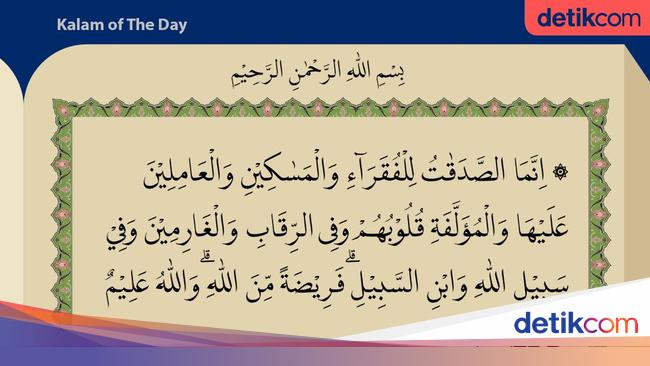 Kalam of The Day
detikcom
بِسْمِ اللّٰهِ الرَّحْمٰنِ الرَّحِيْمِ
۞ اِنَّمَا الصَّدَقٰتُ لِلْفُقَرَاۤءِ وَالْمَسٰكِيْنِ وَالْعَامِلِيْنَ
عَلَيْهَا وَالْمُؤَلَّفَةِ قُلُوْبُهُمْ وَفِى الرِّقَابِ وَالْغَارِمِيْنَ وَفِيْ
سَبِيْلِ اللّٰهِ وَابْنِ السَّبِيْلِۗ فَرِيْضَةً مِّنَ اللّٰهِۗ وَاللّٰهُ عَلِيْمٌ
detikcom